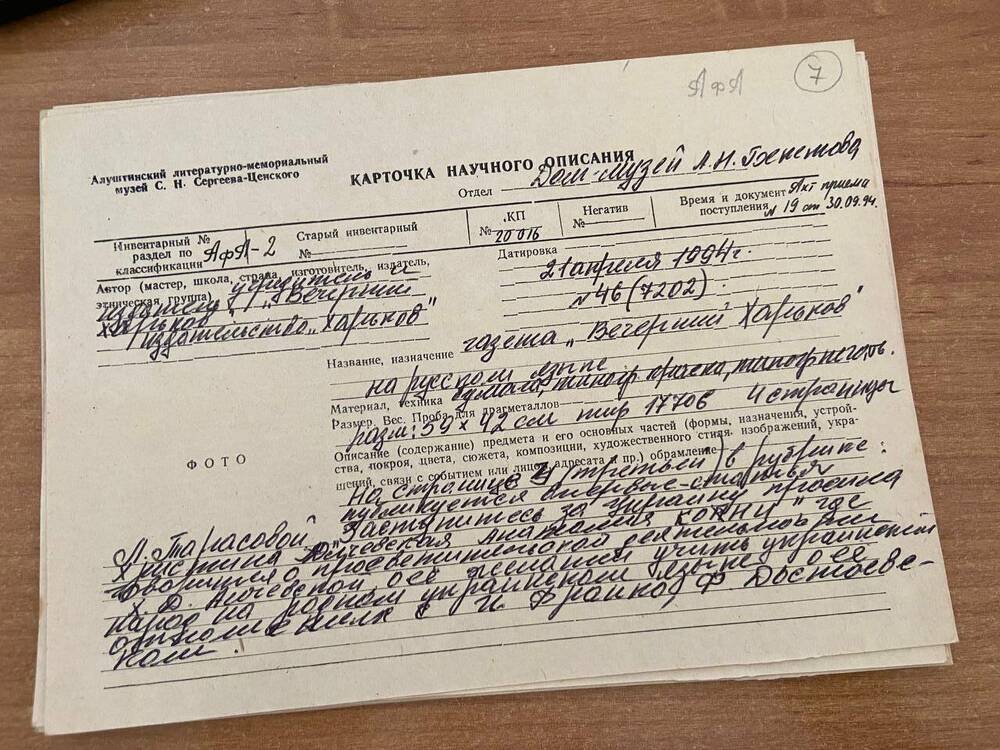 АфА
7
Алуштинский литературно-мемориальный
музей С. Н. Сергеева-Ценского
КАРТОЧКА НАУЧНОГО ОПИСАНИЯ
Отдел Дом-музей А.Н. Бекетова
Инвентарный №
раздел по
классификации АфА-2
Старый инвентарный
№
КП
№ 20016
Негатив
№
Время и документ Акт приема
поступления N 19 от 30.09.94.
Автор (мастер, школа, страна, изготовитель, издатель,
этническая группа) учредитель и
издатель "Вечерний
Харьков"
издательство "Харьков"
Датировка
21 апреля 1994 г.
N 46 (7202)
Название, назначение газета "Вечерний Харьков"
на русском языке
Материал, техника бумага, типогр. краска, типогр. печать.
Размер. Вес. Проба для драгметаллов
разм: 59 х 42 см тир 17706 4 страницы
Описание (содержание) предмета и его основных частей (формы, назначения, устрой-
ства, покроя, цвета, сюжета, композиции, художественного стиля, изображений, укра-
шений, связи с событием или лицом, адресата и пр.) обрамление
ФОТО
На странице 3 (третьей) в рубрике:
публикуется впервые-статья
Л. Тарасовой "Заступитесь за Украину
Христина Алчевская где
говорится о просветительской деятельности
Х. Д. Алчевской, о её желании учить украинский
народ на родном украинском языке о её
отношениях к И. Франко и Ф Достоевс-
ком.